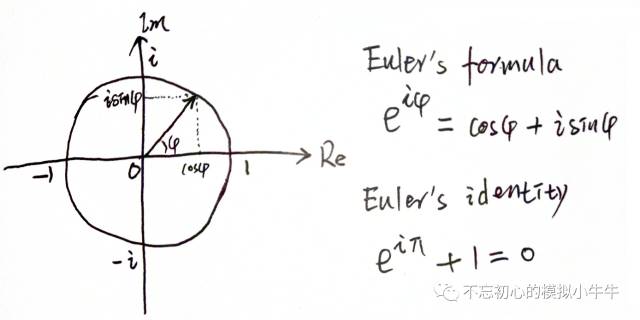 Im
i
isinφ
φ
-1
0
cosφ
1
Re
-i
Euler's formula
e^{iφ} = cosφ + i sinφ
Euler's identity
e^{iπ} + 1 = 0
不忘初心的模拟小牛牛